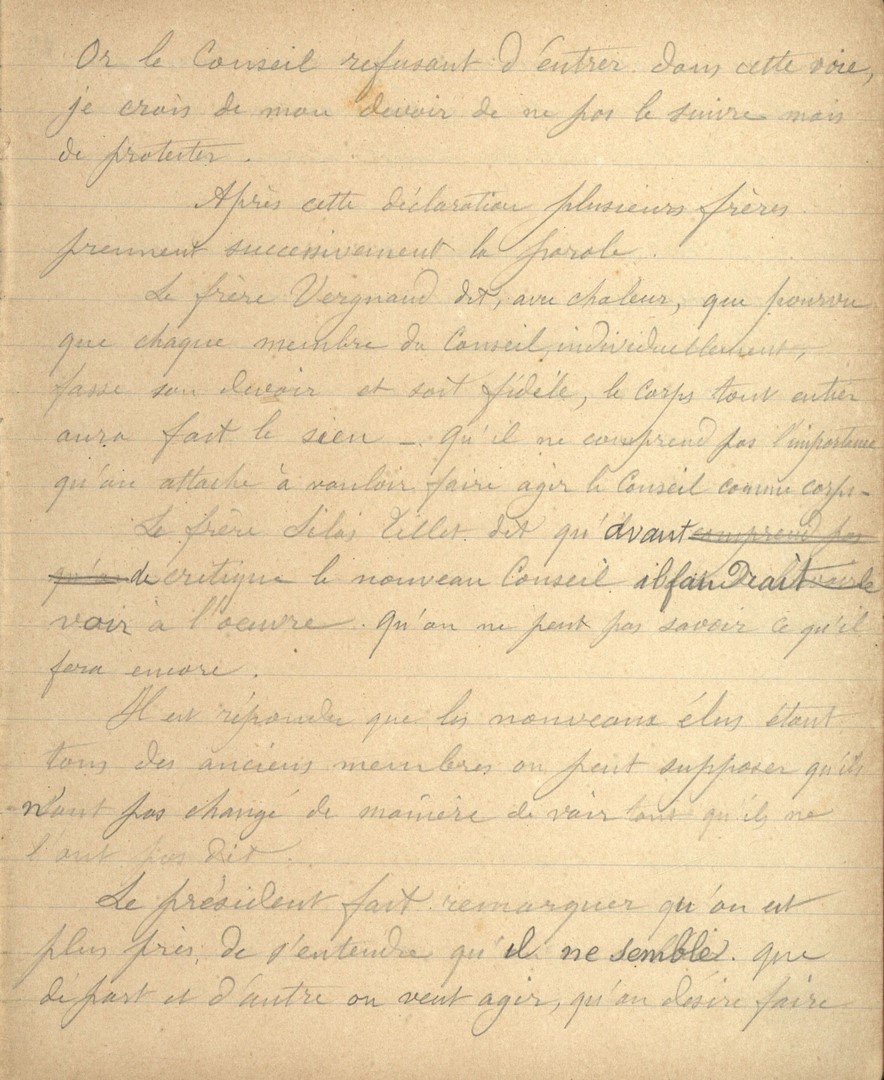 Or le Conseil refusant d'entrer dans cette voie,
je crois de mon devoir de ne pas le suivre mais
de protester.
Après cette déclaration plusieurs frères
prennent successivement la parole.
Le frère Vergnaud dit, avec chaleur, que pourvu
que chaque membre du Conseil, individuellement,
fasse son devoir et soit fidèle, le corps tout entier
aura fait le sien – qu'il ne comprend pas l'importance
qu'on attache à vouloir faire agir le Conseil comme corps –
Le frère Silas dit qu'avant comprend pas
qu'on de critique le nouveau Conseil il faudrait
voir à l'oeuvre. Qu'on ne peut pas savoir ce qu'il
fera encore.
Il est répondu que les nouveaux élus étant
tous des anciens membres on peut supposer qu'ils
n'ont pas changé de manière de voir tant qu'ils ne
l'ont pas dit.
Le président fait remarquer qu'on est
plus près de s'entendre qu'il ne semble. que
de part et d'autre on veut agir, qu'on désire faire